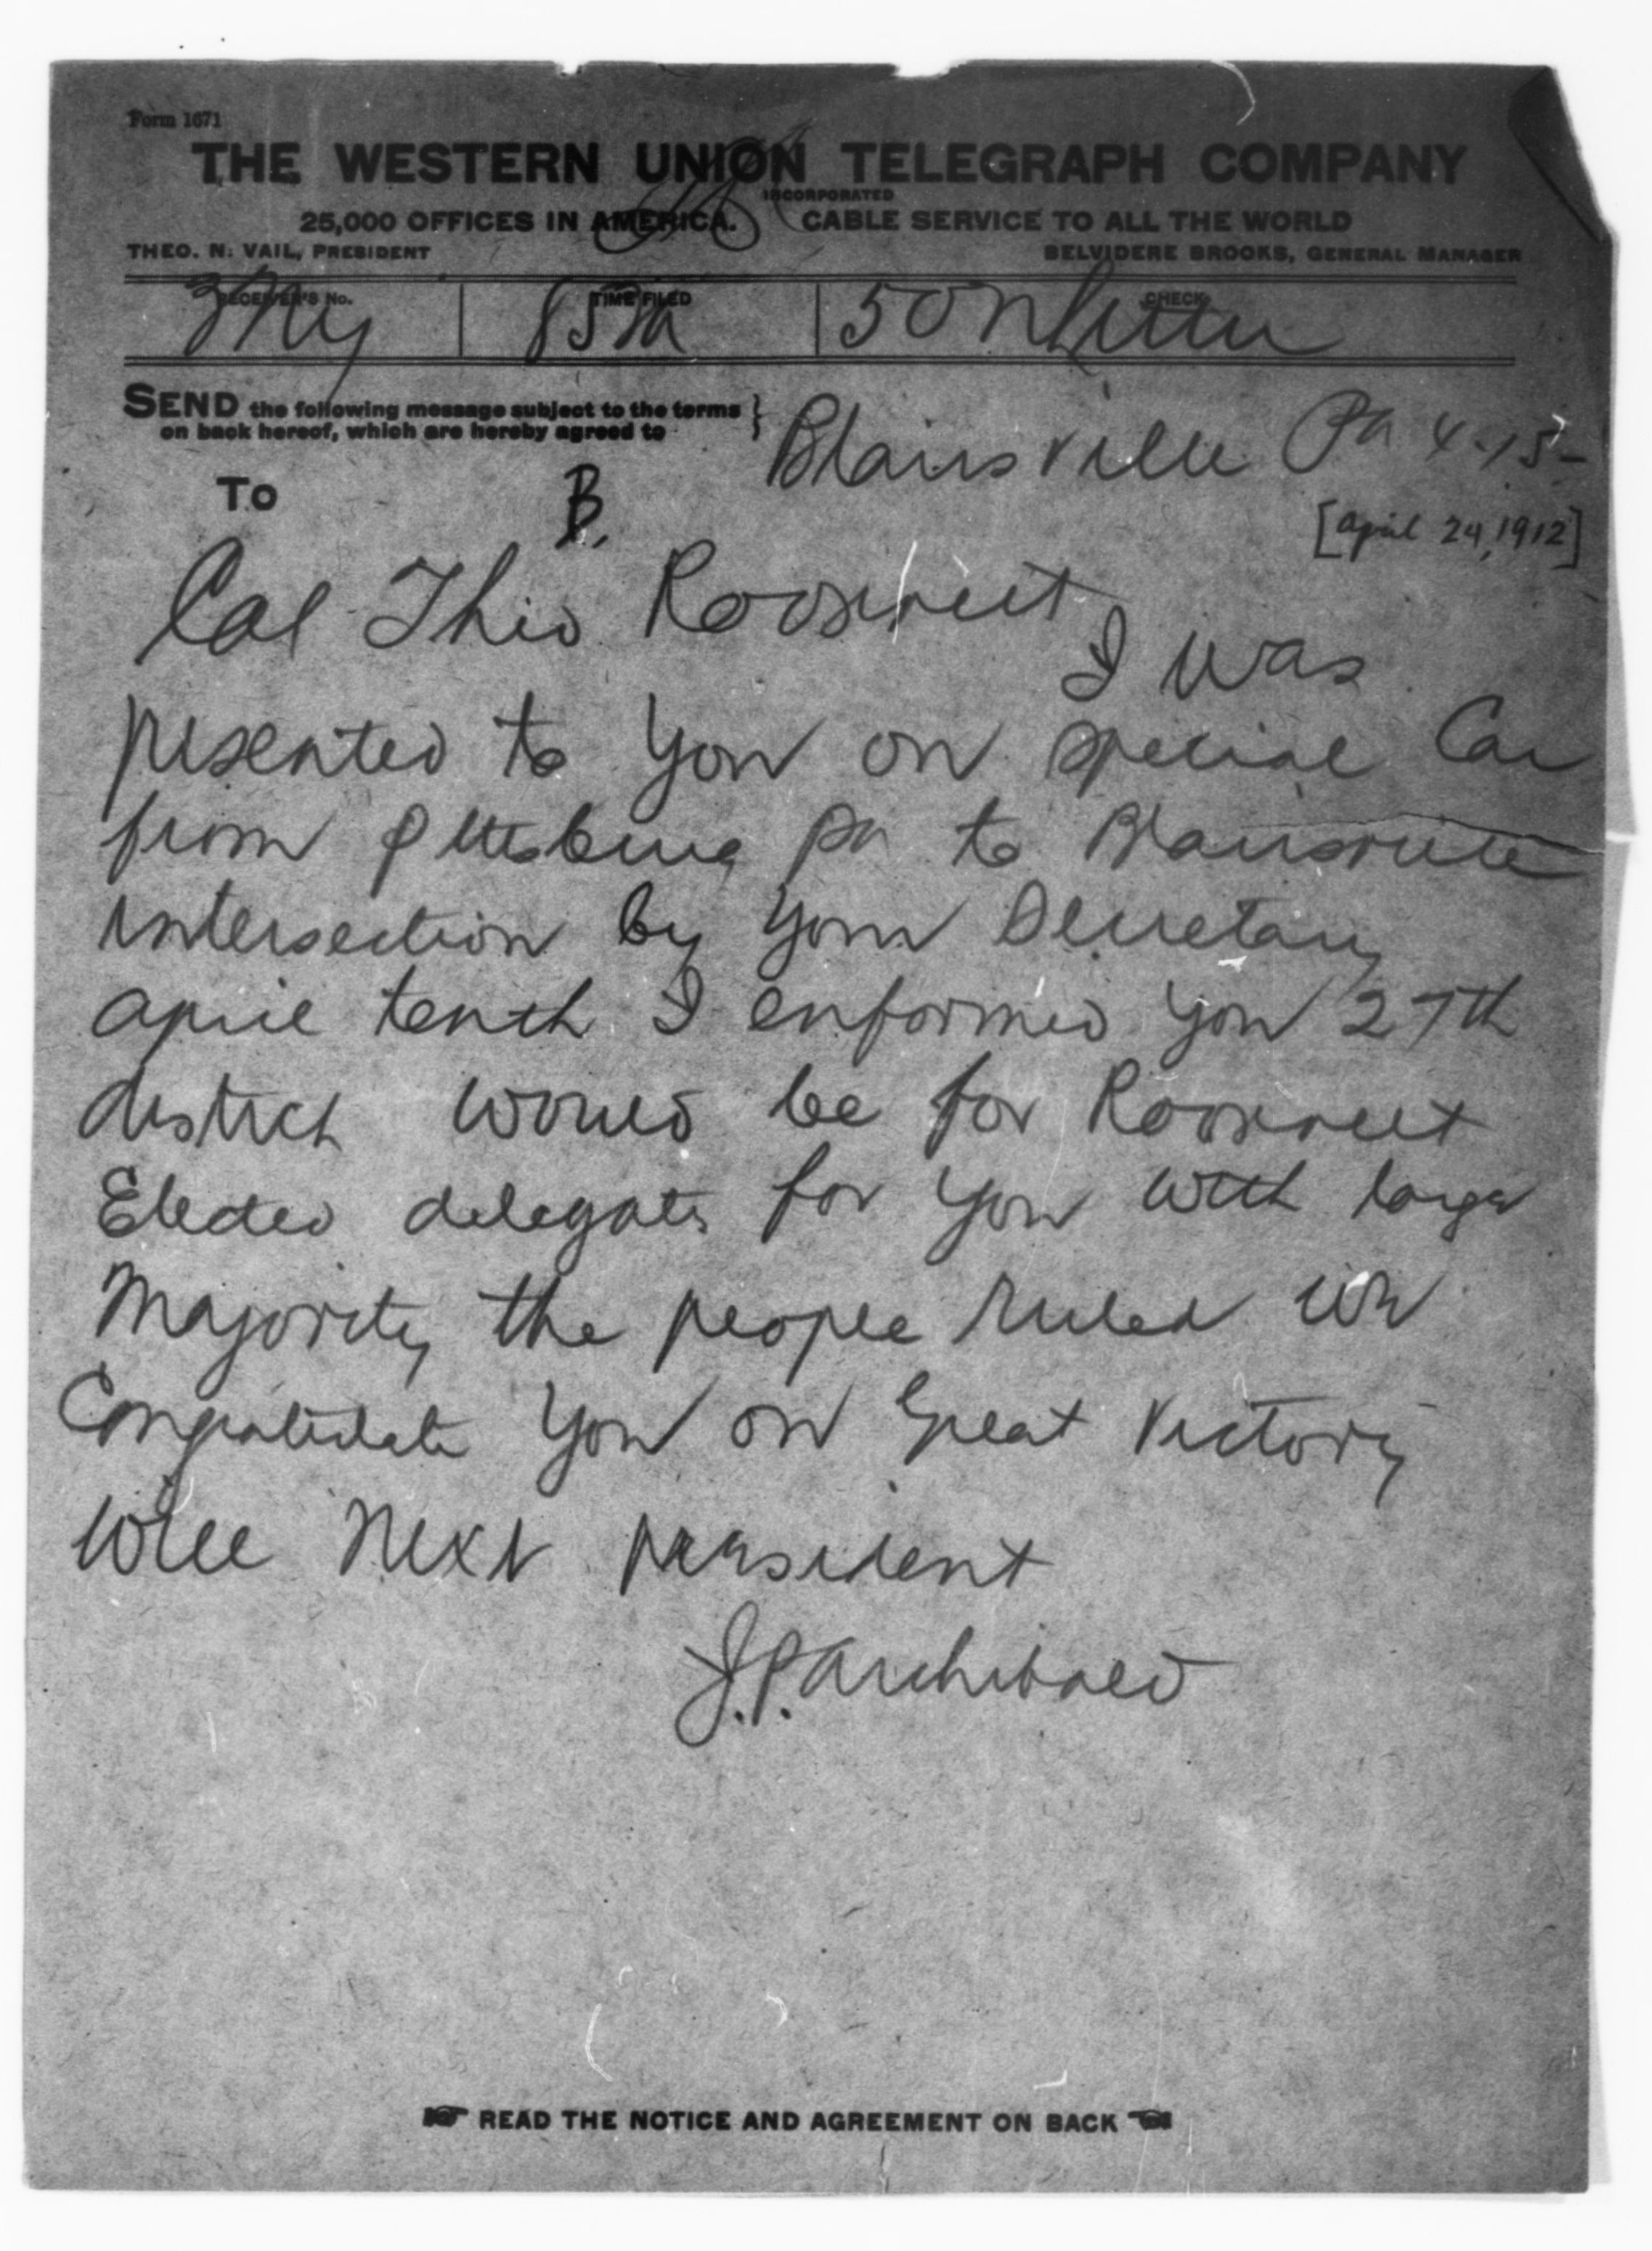 Form 1671
THE WESTERN UNION TELEGRAPH COMPANY
INCORPORATED
25,000 OFFICES IN AMERICA. CABLE SERVICE TO ALL THE WORLD
THEO. N. VAIL, PRESIDENT BELVIDERE BROOKS, GENERAL MANAGER
RECEIVER'S No. TIME FILED CHECK
3Ny 853a 50 N Letter
SEND the following message subject to the terms
on back hereof, which are hereby agreed to
Blairsville Pa 4-15-
To B. [April 24, 1912]
Col Theo Roosevelt
I was
presented to you on special Car
from Pittsburg Pa to Blairsville
intersection by your Secretary
april tenth I informed you 27th
district would be for Roosevelt
Elected delegates for you with large
Majority the people ruled we
Congratulate you on Great Victory
Will Next president
J.P. Archibald
READ THE NOTICE AND AGREEMENT ON BACK